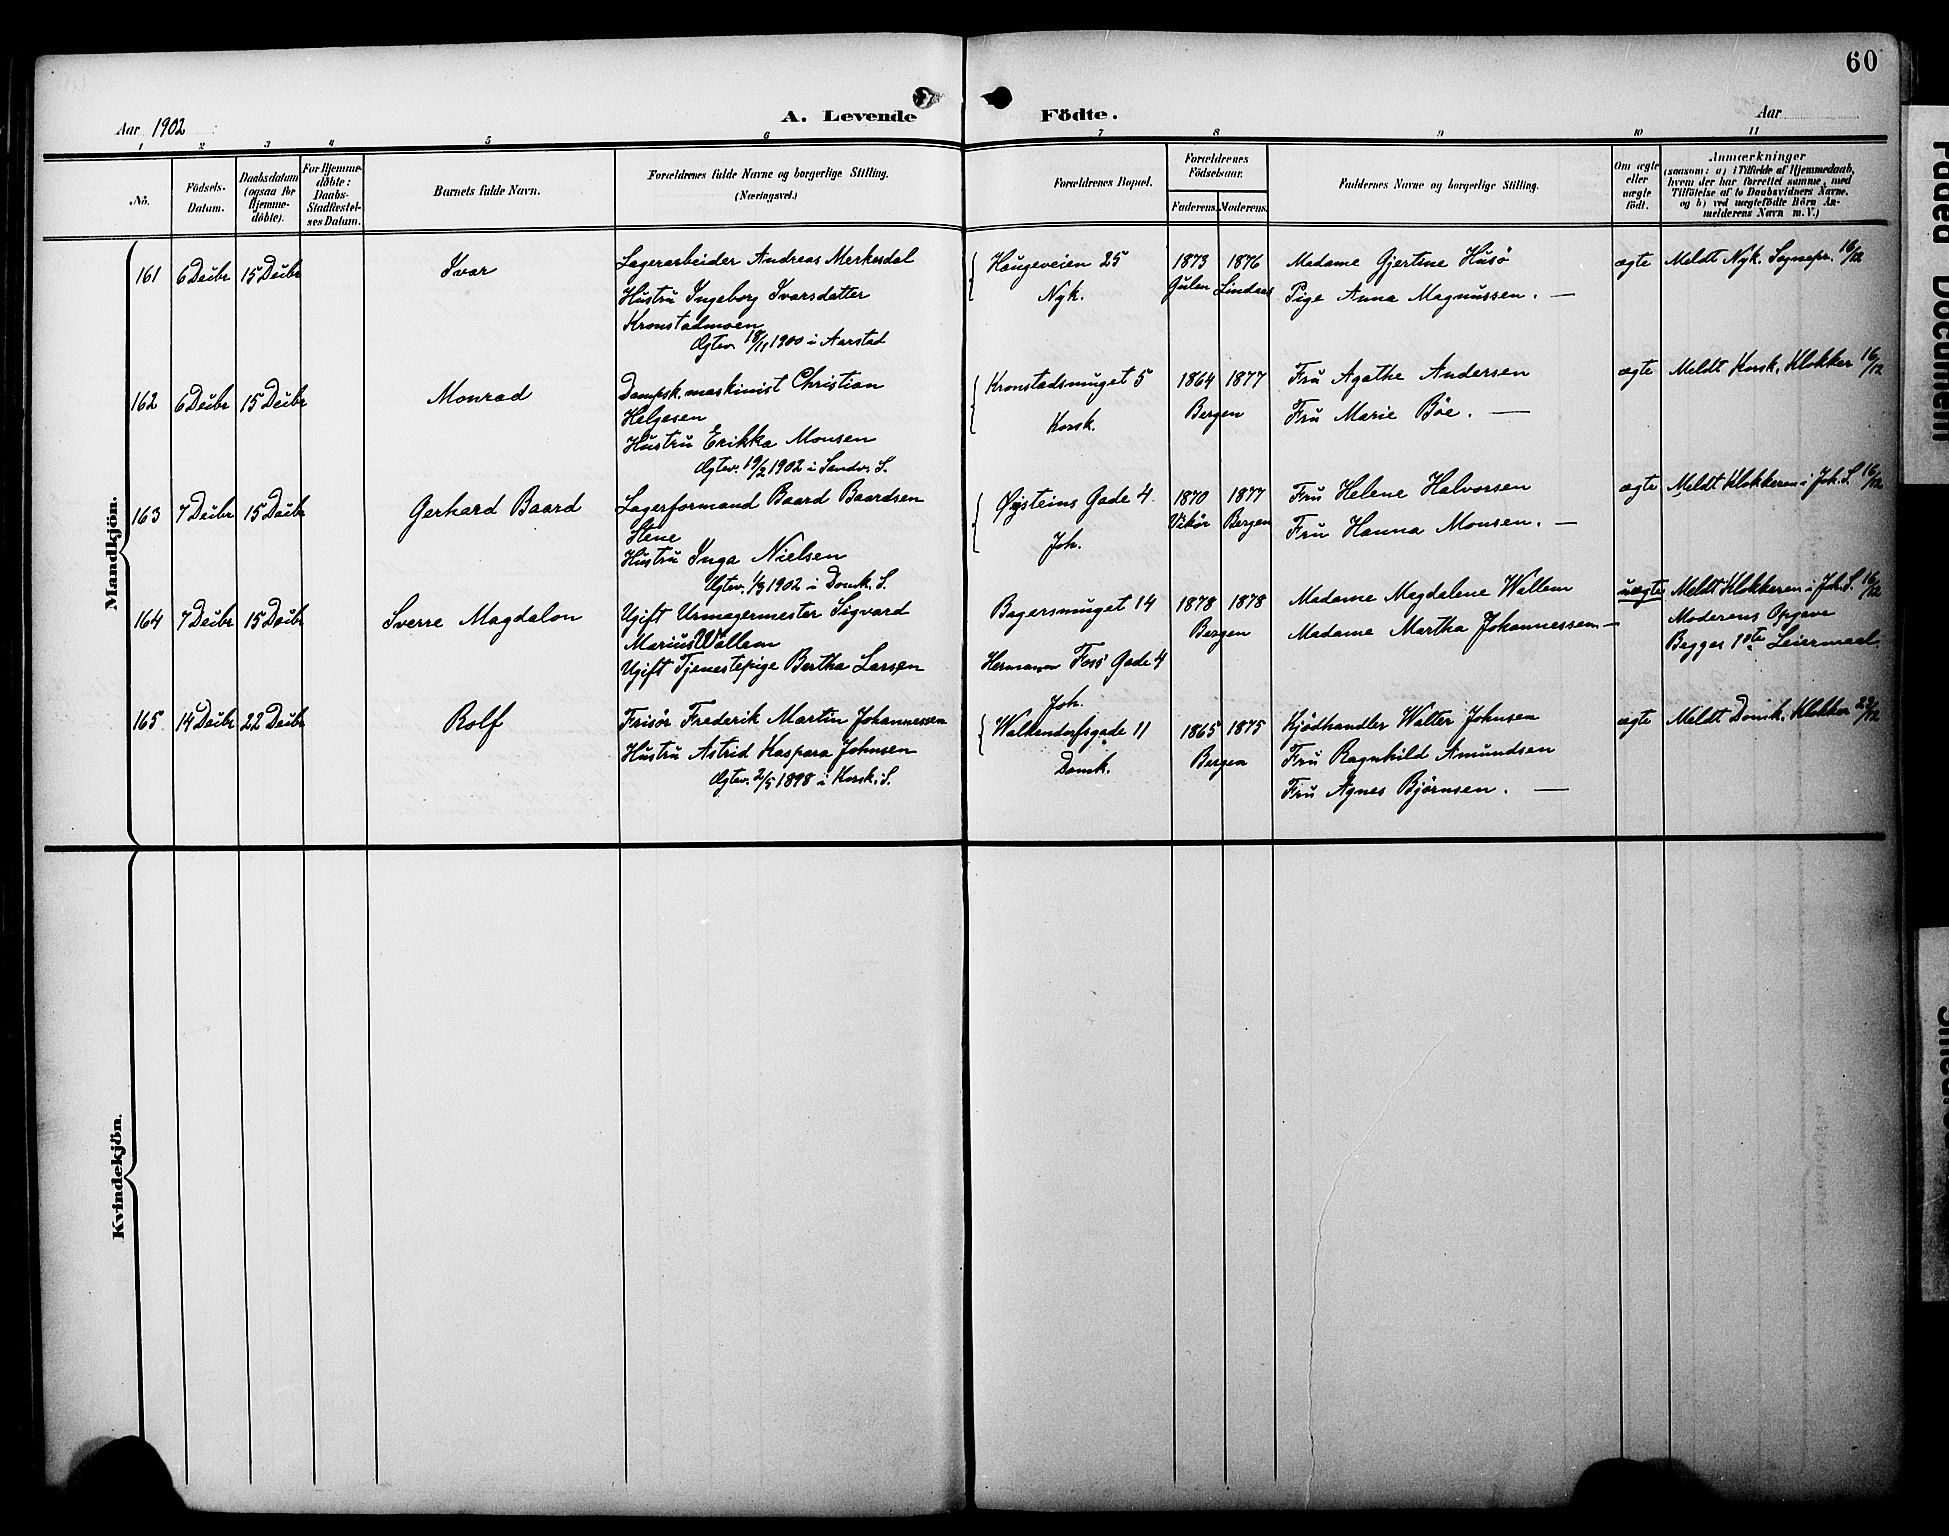 60
Aar 1902
A. Levende Födte.
Aar
1 2 3 4 5 6 7 8 9 10 11
No.
Födsels-
Datum.
Daabsdatum
(ogsaa for
Hjemme-
döbte).
For Hjemme-
döbte:
Daabs-
Stadfæstel-
ses Datum.
Barnets fulde Navn.
Forældrenes fulde Navne og borgerlige Stilling.
(Næringsvei.)
Forældrenes Bopæl.
Forældrenes
Födselsaar.
Faderens. Moderens.
Faddernes Navne og borgerlige Stilling.
Om ægte
eller
uægte
födt.
Anmærkninger
(saasom: a) i Tilfælde af Hjemmedaab,
hvem der har forrettet samme, med
Tilföielse af to Daabsvidners Navne,
og b) ved uægtefödte Börn An-
melderens Navn m. V.)
Mandkjön.
161 6 Decbr 15 Decbr
Ivar
Lagerarbeider Andreas Merkesdal
Hustru Ingeborg Ivarsdatter
Kronstadmoen
Ægtev. 18/11 1900 i Aarstad
Haugeveien 25
Nyk.
1873 1876
Gulen Lindaas
Madame Gjertine Husø
Pige Anna Magnussen. —
ægte
Meldt Nyk. Sognepr. 16/12
162 6 Decbr 15 Decbr
Monrad
Dampsk. maskinist Christian
Helgesen
Hustru Erikka Monsen
Ægtev. 19/2 1902 i Sandv. S.
Kronstadsmuget 5
Korsk.
1864 1877
Bergen
Fru Agathe Andersen
Fru Marie Bøe. —
ægte
Meldt Korsk. Klokker 16/12
163 7 Decbr 15 Decbr
Gerhard Baard
Lagerformand Baard Baardsen
Stene
Hustru Inga Nielsen
Ægtev. 1/3 1902 i Domk. S.
Øysteins Gade 4
Joh.
1870 1877
Vikør Bergen
Fru Helene Halvorsen
Fru Hanna Monsen. —
ægte
Meldt Klokkeren i Joh. S. 16/12
164 7 Decbr 15 Decbr
Sverre Magdalon
Ugift Urmagermester Sigvard
Marius Wallem
Ugift Tjenestepige Bertha Larsen
Bagersmuget 14
Hermann Foss Gade 4
Joh.
1878 1878
Bergen
Madame Magdalene Wallem
Madame Martha Johannessen —
uægte
Meldt Klokkeren i Joh. S. 16/12
Moderens Opgave
Begges 1ste Leiermaal.
165 14 Decbr 22 Decbr
Rolf
Frisør Frederik Martin Johannessen
Hustru Astrid Kaspara Johnsen
Ægtev. 2/5 1898 i Korsk. S.
Walkendorfsgade 11
Domk.
1865 1875
Bergen
Kjødhandler Walter Johnsen
Fru Ragnhild Amundsen
Fru Agnes Bjørnsen. —
ægte
Meldt Domk. Klokker 23/12
Kvindekjön.
Faded Document